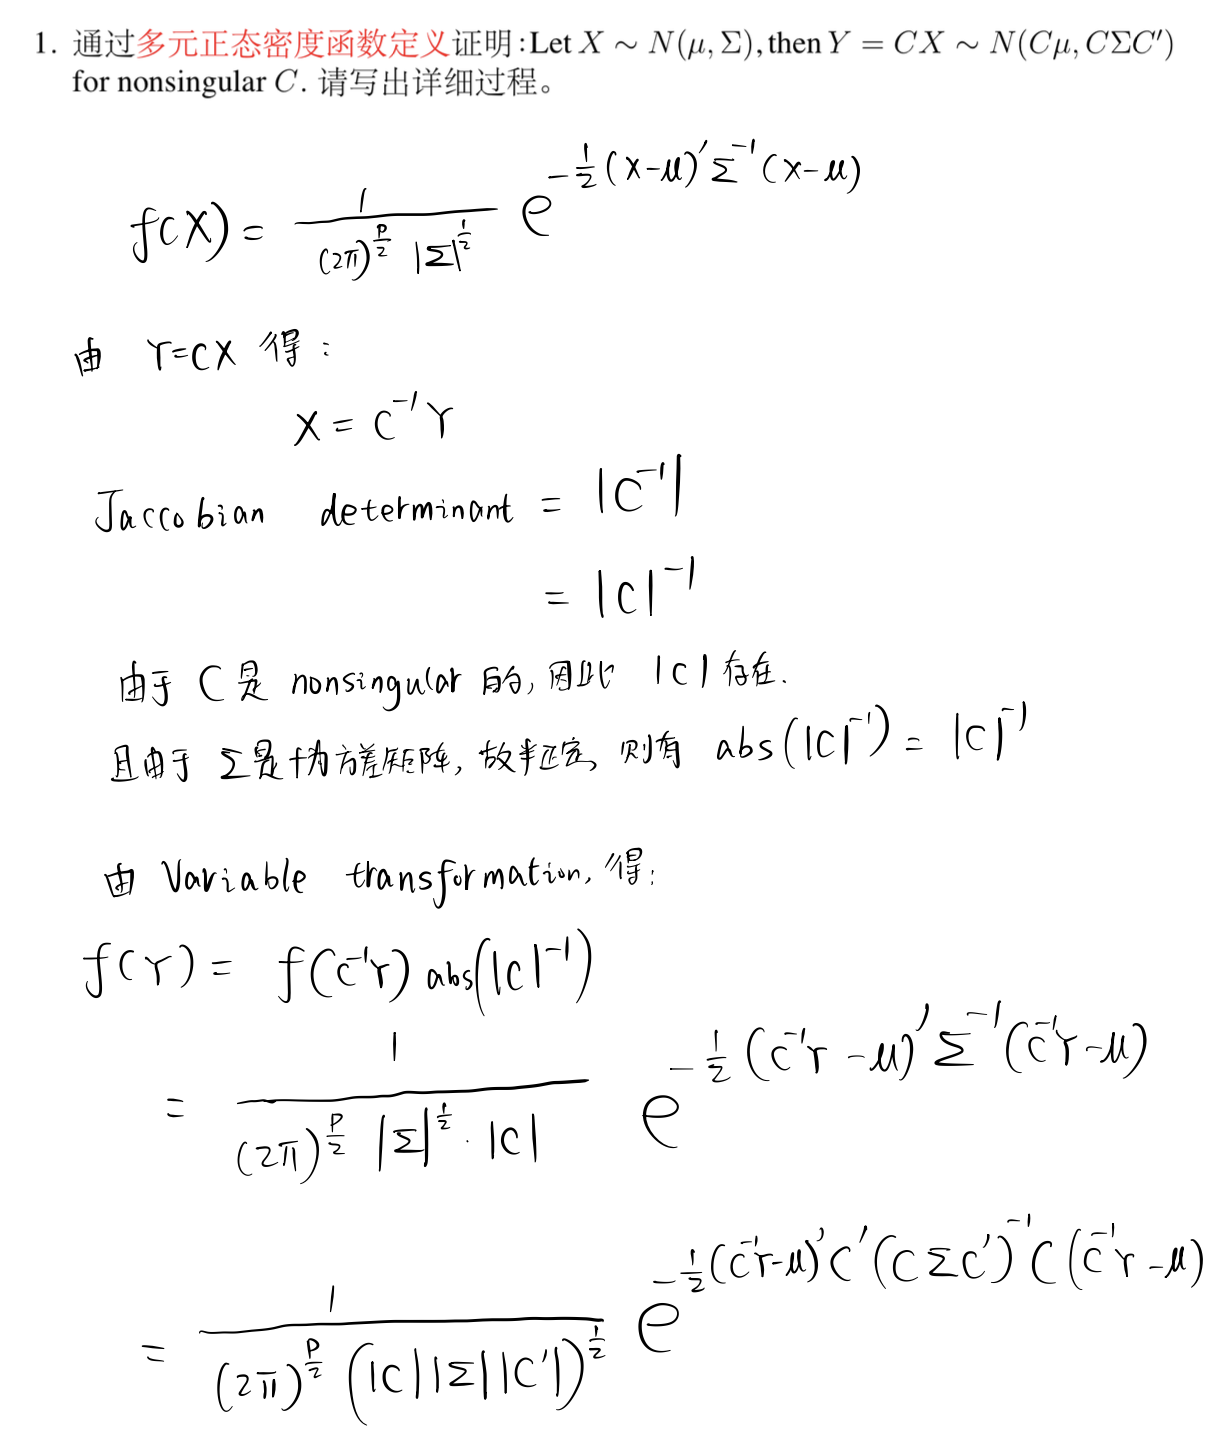 1. 通过多元正态密度函数定义证明:Let X ∼ N(μ, Σ), then Y = CX ∼ N(Cμ, CΣC′)
for nonsingular C. 请写出详细过程。
f(X) = 1 / ((2π)^{p/2} |Σ|^{1/2}) e^{-1/2 (X-μ)′ Σ^{-1} (X-μ)}
由 Y=CX 得:
X = C^{-1}Y
Jaccobian determinant = |C^{-1}|
= |C|^{-1}
由于 C 是 nonsingular 的, 因此 |C| 存在.
且由于 Σ 是协方差矩阵, 故半正定, 则有 abs(|C|^{-1}) = |C|^{-1}
由 Variable transformation, 得:
f(Y) = f(C^{-1}Y) abs(|C|^{-1})
= 1 / ((2π)^{p/2} |Σ|^{1/2} · |C|) e^{-1/2 (C^{-1}Y-μ)′ Σ^{-1} (C^{-1}Y-μ)}
= 1 / ((2π)^{p/2} (|C||Σ||C′|)^{1/2}) e^{-1/2 (C^{-1}Y-μ)′C′(CΣC′)^{-1}C(C^{-1}Y-μ)}